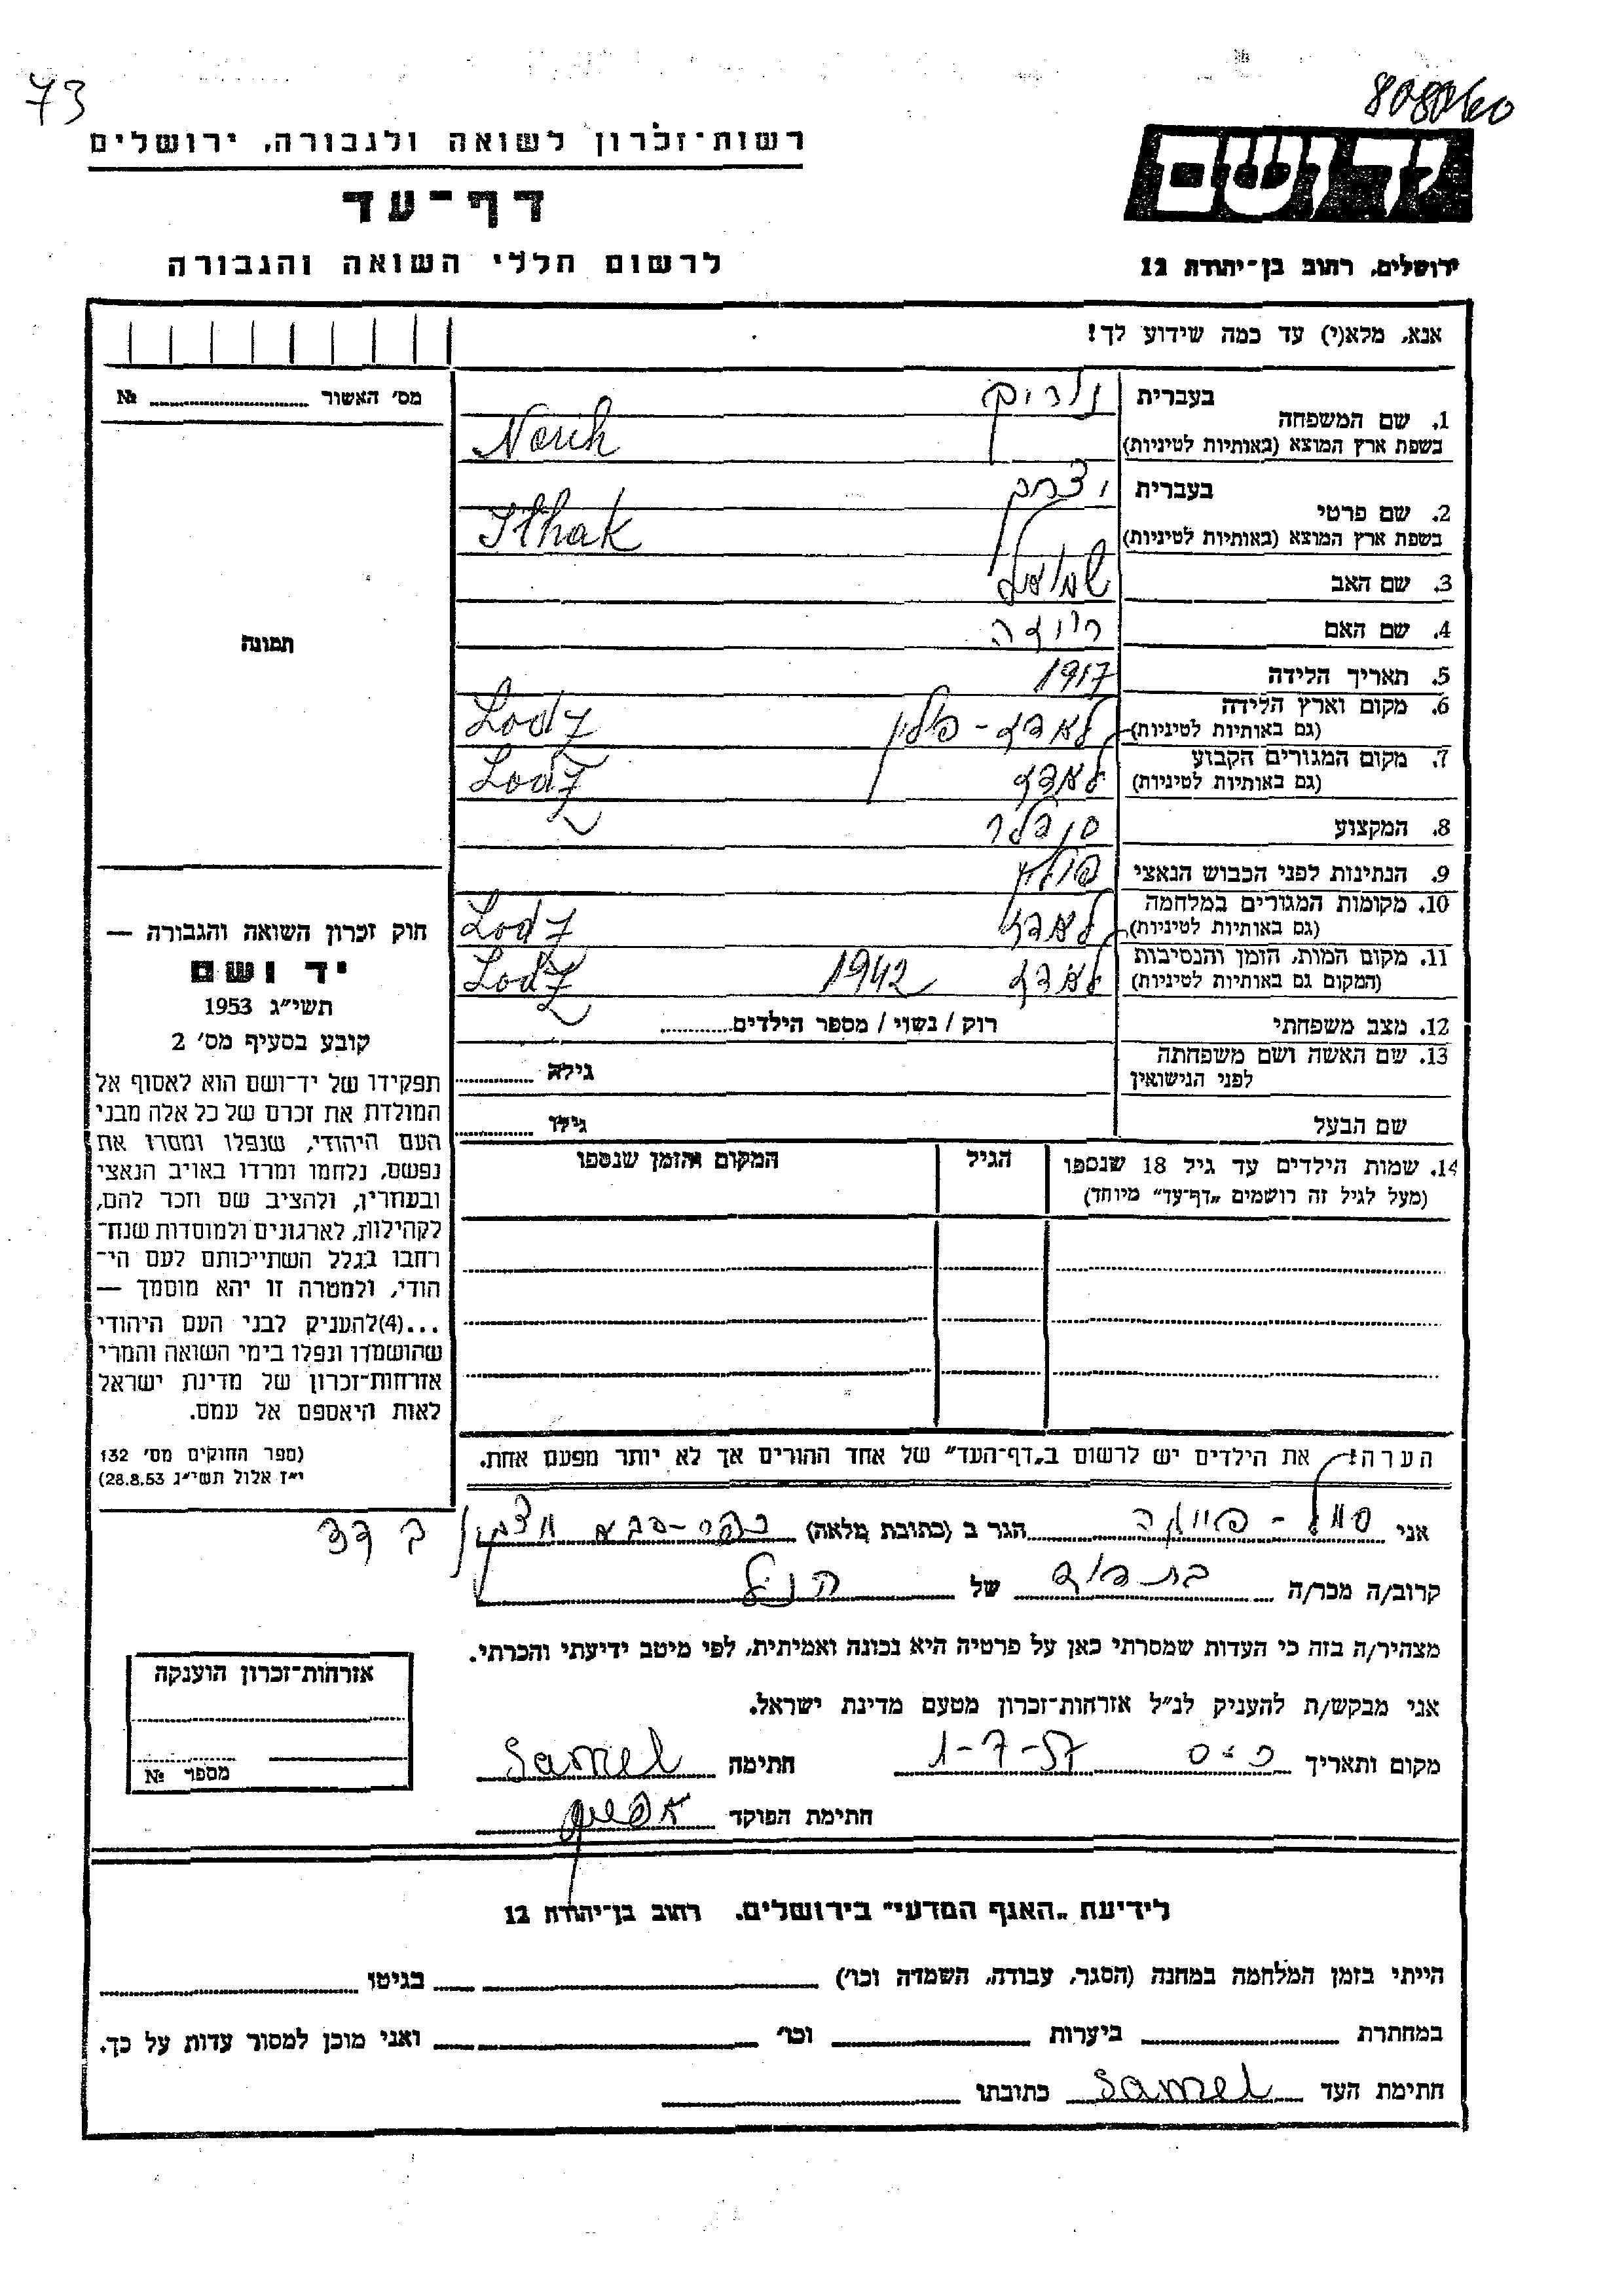 73
8080660
רשות־זכרון לשואה ולגבורה, ירושלים
ידושם
דף־עד
לרשום חללי השואה והגבורה
ירושלים, רחוב בן־יהודה 12
אנא, מלא(י) עד כמה שידוע לך!
מס׳ האשור № 
בעברית
1. שם המשפחה
בשפת ארץ המוצא (באותיות לטיניות) Norih
בעברית יצחק
2. שם פרטי
בשפת ארץ המוצא (באותיות לטיניות) Ithak
3. שם האב שמואל
4. שם האם
5. תאריך הלידה 1917
6. מקום וארץ הלידה
(גם באותיות לטיניות) לאדז - פולין Lodz
7. מקום המגורים הקבוע
(גם באותיות לטיניות) לאדז Lodz
8. המקצוע סנדלר
9. הנתינות לפני הכבוש הנאצי
10. מקומות המגורים במלחמה
(גם באותיות לטיניות) לאדז Lodz
11. מקום המות, הזמן והנסיבות
(המקום גם באותיות לטיניות) לאדז 1942 Lodz
12. מצב משפחתי רוק / נשוי / מספר הילדים
13. שם האשה ושם משפחתה
לפני הנישואין גילה
שם הבעל גילו
14. שמות הילדים עד גיל 18 שנספו הגיל המקום והזמן שנספו
(מעל לגיל זה רושמים „דף־עד״ מיוחד)
הערה: את הילדים יש לרשום ב„דף־העד״ של אחד ההורים אך לא יותר מפעם אחת.
תמונה
חוק זכרון השואה והגבורה —
יד ושם
תשי״ג 1953
קובע בסעיף מס׳ 2
תפקידו של יד־ושם הוא לאסוף אל
המולדת את זכרם של כל אלה מבני
העם היהודי, שנפלו ומסרו את
נפשם, נלחמו ומרדו באויב הנאצי
ובעוזריו, ולהציב שם וזכר להם,
לקהילות, לארגונים ולמוסדות שנח־
רבו בגלל השתייכותם לעם הי־
הודי, ולמטרה זו יהא מוסמך —
...(4) להעניק לבני העם היהודי
שהושמדו ונפלו בימי השואה והמרי
אזרחות־זכרון של מדינת ישראל
לאות היאספם אל עמם.
(ספר החוקים מס׳ 132
י״ז אלול תשי״ג 28.8.53)
אני הגר ב (כתובת מלאה) כפר-סבא
קרוב/ה מכר/ה בת דוד של הנ״ל
מצהיר/ה בזה כי העדות שמסרתי כאן על פרטיה היא נכונה ואמיתית, לפי מיטב ידיעתי והכרתי.
אני מבקש/ת להעניק לנ״ל אזרחות־זכרון מטעם מדינת ישראל.
מקום ותאריך כ-ס 1-7-57 חתימה Samel
חתימת הפוקד
אזרחות־זכרון הוענקה
מספר №
לידיעת „האגף המדעי״ בירושלים, רחוב בן־יהודה 12
הייתי בזמן המלחמה במחנה (הסגר, עבודה, השמדה וכו׳) בגיטו
במחתרת ביערות וכו׳ ואני מוכן למסור עדות על כך.
חתימת העד Samel כתובתו